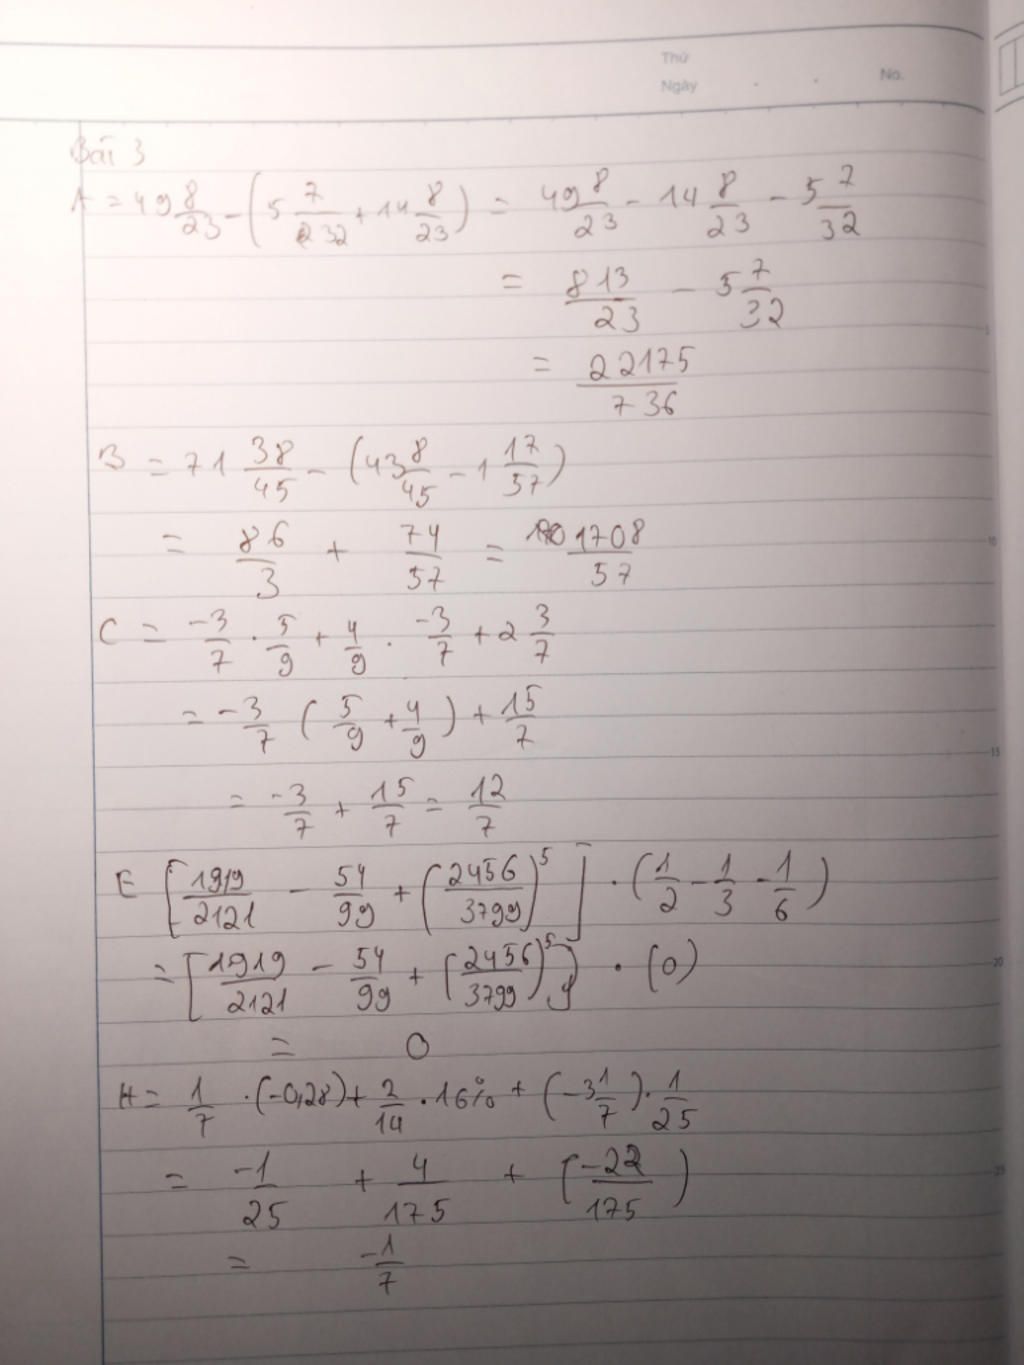 Thứ
Ngày . . No.
Bài 3
A = 49 8/23 - (5 7/232 + 14 8/23) = 49 8/23 - 14 8/23 - 5 7/32
= 813/23 - 5 7/32
= 22175/736
B = 71 38/45 - (43 8/45 - 1 17/57)
= 86/3 + 74/57 = 1708/57
C = -3/7 . 5/9 + 4/9 . -3/7 + 2 3/7
= -3/7 (5/9 + 4/9) + 15/7
= -3/7 + 15/7 = 12/7
E [1919/2121 - 54/99 + (2456/3799)^5] . (1/2 - 1/3 - 1/6)
= [1919/2121 - 54/99 + (2456/3799)^5] . (0)
= 0
H = 1/7 . (-0,28) + 2/14 . 16% + (-3 1/7) . 1/25
= -1/25 + 4/175 + (-22/175)
= -1/7